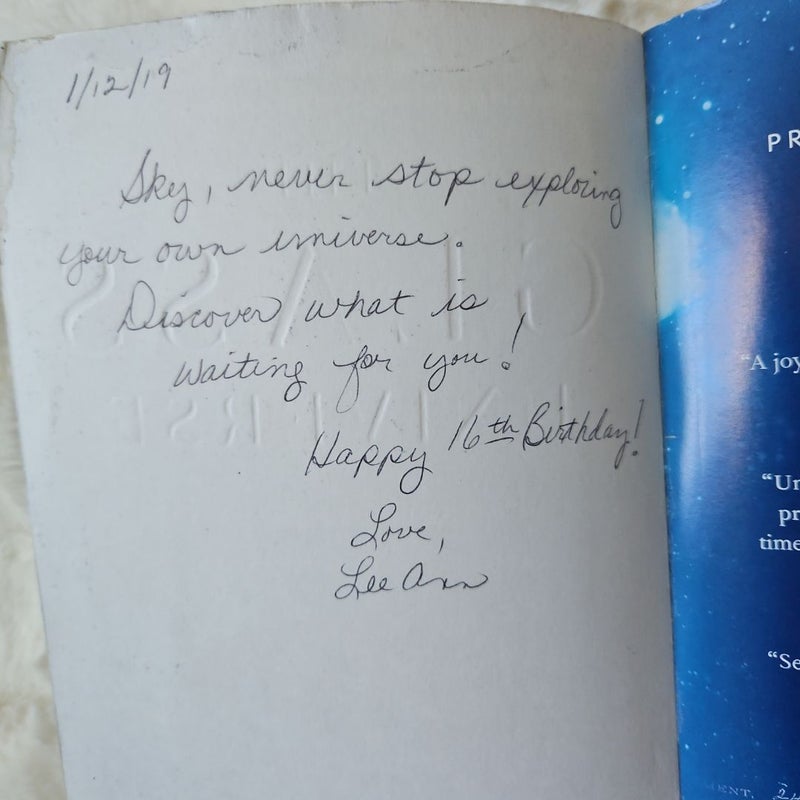 1/12/19
Sky, never stop exploring
your own universe.
Discover what is
waiting for you!
Happy 16th Birthday!
Love,
Lee Ann
GLASS
UNIVERSE
PR
"A joy
"Un
pr
time
"Se